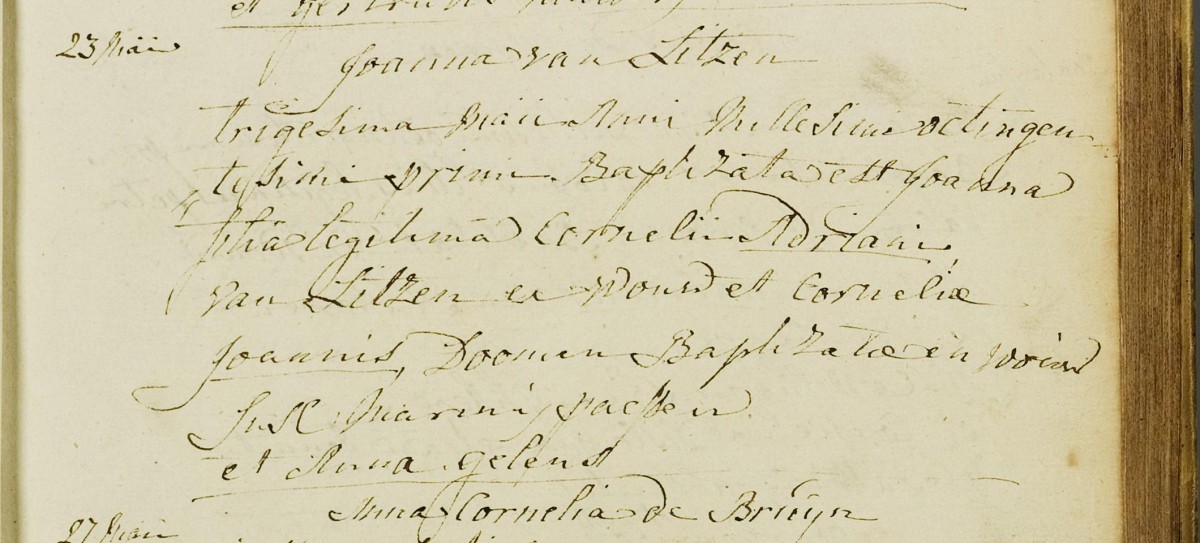 et gertrudis
23 Maii
Joanna van Litzen
trigesima Maii Anni Millesimi octingen
tesimi primi Baptizata est Joanna
filia legitima Cornelii Adriani
van Litzen ex Wouw et Corneliæ
Joannis, Doomen Baptizatæ en Wouw
Susc Marinus paessen
et Anna gelens
27 Maii
Anna Cornelia de Bruijn